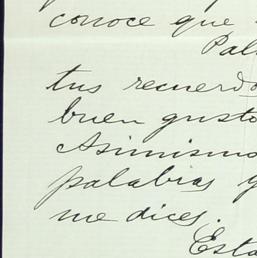 conoce que
Pal
tus recuerdo
buen gusto
Asimismo
palabras y
me dices.
Esta